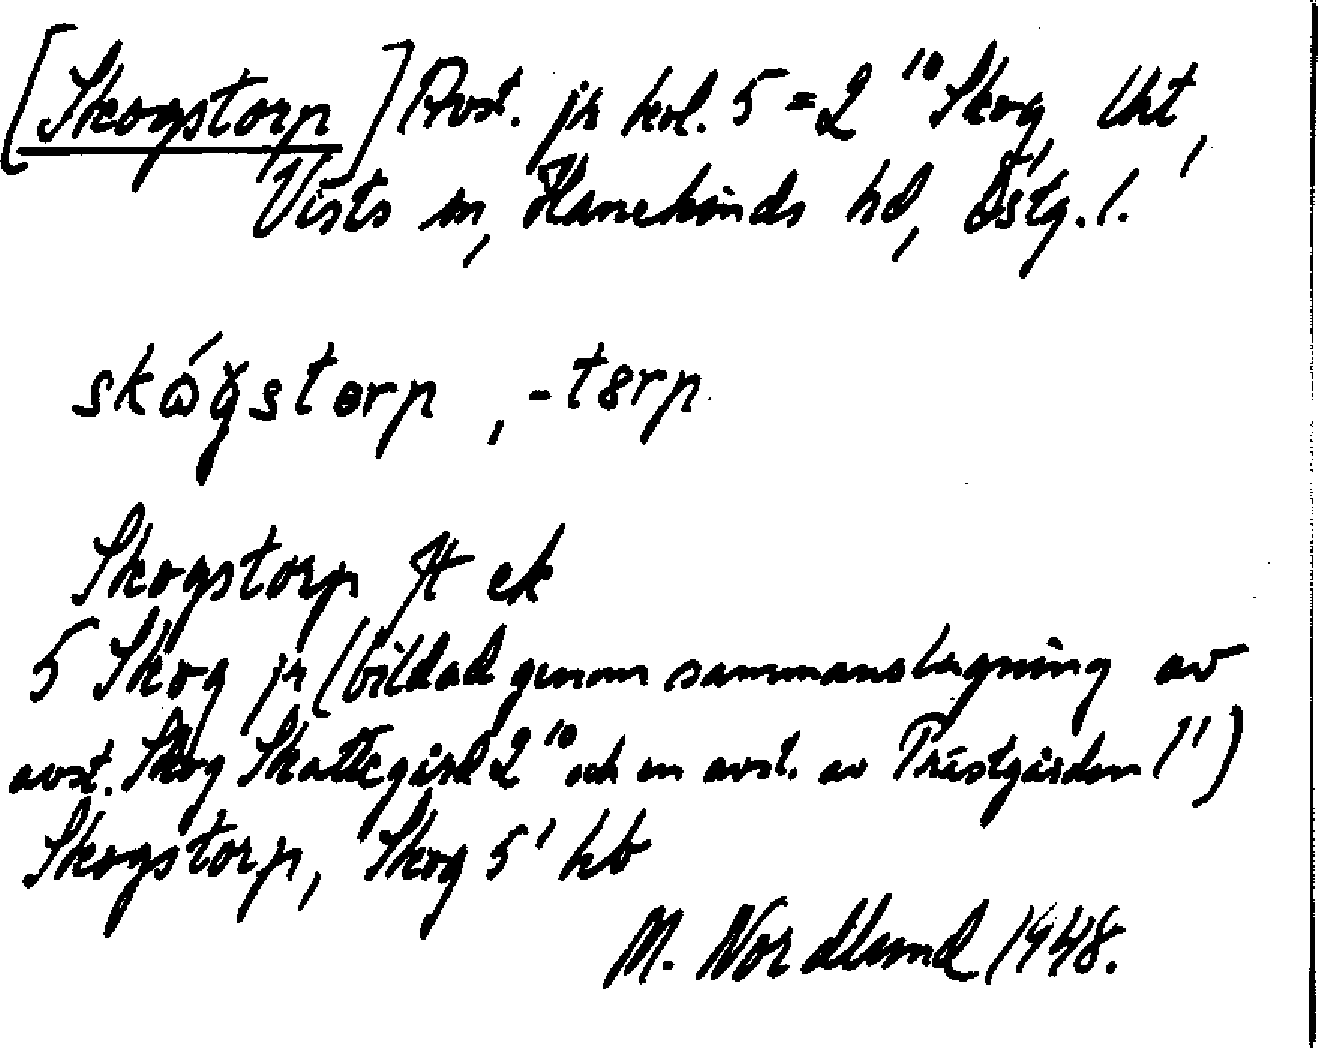 [Skogstorp] Avst. jr kol. 5 = 2¹⁰ Skog Utt,
Vists sn, Hanekinds hd, Östg. l.
skώɣstɵrp, -tɵrp
Skogstorp jt ek
5 Skog jr (bildad genom sammanslagning av
avst. Skog Skattegård 2¹⁰ och en avst. av Prästgården 1')
Skogstorp, Skog 5' hb
M. Nordlund 1948.